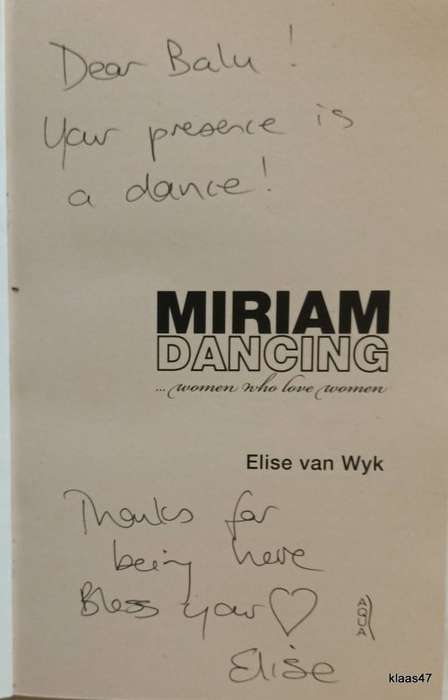 Dear Balu!
Your presence is
a dance!
MIRIAM
DANCING
... women who love women
Elise van Wyk
Thanks for
being here
Bless your ♡
AQUA
Elise
klaas47